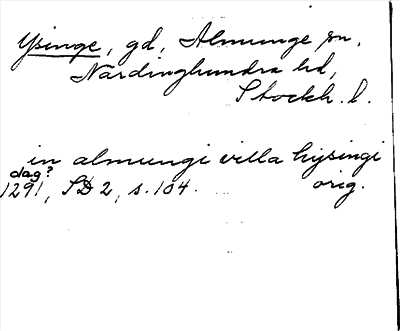 Ysinge, gd, Almunge sn,
Närdinghundra hd,
Stockh. l.
in almungi villa hysingi
dag?
1291, SD 2, s. 104. orig.